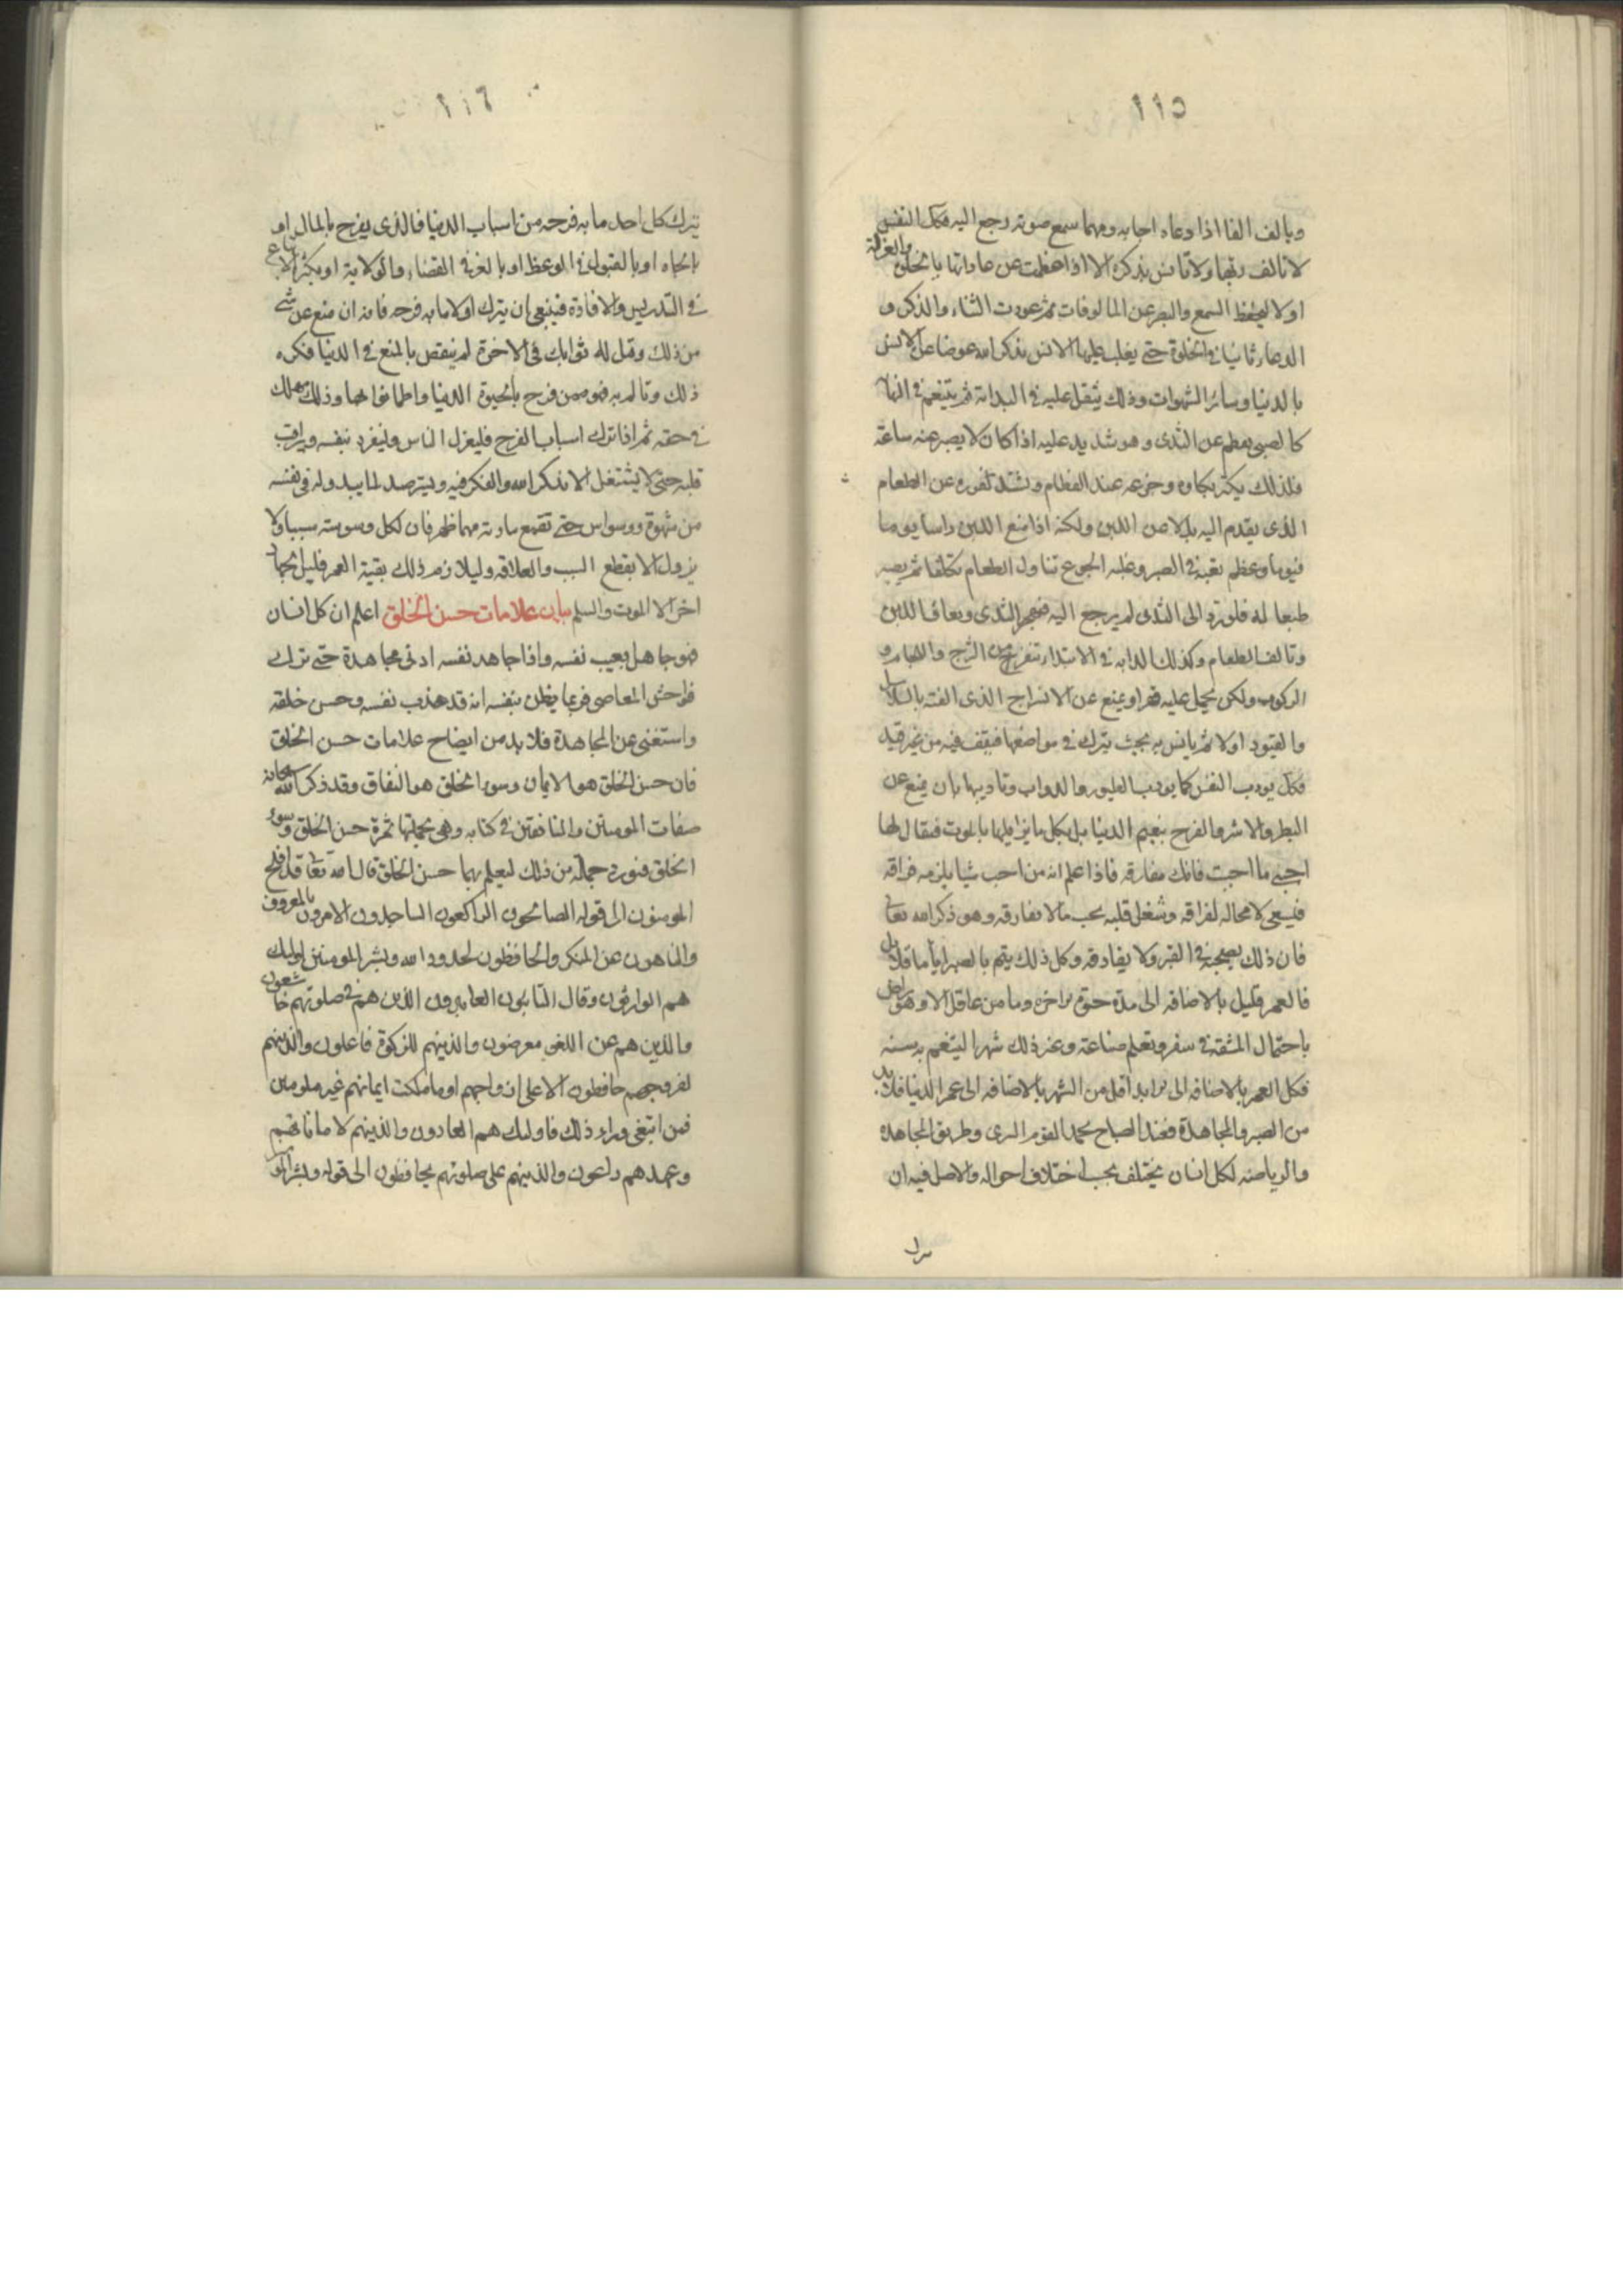 ١١٥
ويالف الفا اذا دعاه اجابه ومهما سمع صوته رجع اليه فكك النفس
لا تالف ربها ولا تانس بذكره الا اذا فطمت عن عاداتها بالخلوة والعزلة
اولا ليحفظ السمع والبصر عن المالوفات ثم عودت الثناء والذكر و
الدعاء ثانيا في الخلوة حتى يغلب عليها الانس بذكر الله عوضا عن الانس
بالدنيا وسائر الشهوات وذلك يثقل عليه في البداية ثم يتنعم في النهاية
كالصبي يفطم عن الثدى وهو شديد عليه اذا كان لا يصبر عنه ساعة
فلذلك يكثر بكاوه وجزعه عند الفطام ويشتد نفوره عن الطعام
الذى يقدم اليه بدلا من اللبن ولكنه اذا منع اللبن راسا يوما
فيوما وعظم تعبه في الصبر وغلبه الجوع تناول الطعام تكلفا ثم يصير
طبعا له فلو رد الى الثدى لم يرجع اليه فيهجر الثدى ويعاف اللبن
ويالف الطعام وكذلك الدابه في الابتداء تنفر عن السرج واللجام و
الركوب ولكن يحمل عليه قهرا ويمنع عن الانسراح الذى الفته بالسلاسل
والقيود اولا ثم يانس به بحيث يترك في مواضعها فيقف فيه من غير قيد
فكك يودب النفس كما يودب الطيور والدواب وتاديبها بان يمنع عن
البطر والاشر والفرح بنعيم الدنيا بل بكل ما يزايلها بالموت فيقال لها
احبب ما احببت فانك مفارقه فاذا علم انه من احب شيا يلزمه فراقه
فيسعى لا محاله لفراقه وشغل قلبه بحب ما لا يفارقه وهو ذكر الله تعالى
فان ذلك يصحبه في القبر ولا يفارقه وكل ذلك يتم بالصبر اياما قلايل
فالعمر قليل بالاضافه الى مدة حيوة الاخرة وما من عاقل الا وهو راض
باحتمال المشقه في سفر وتعلم صناعة وغير ذلك شهرا ليتنعم به سنه
فكل العمر بالاضافه الى الابد اقل من الشهر بالاضافه الى عمر الدنيا فلابد
من الصبر والمجاهدة فعند الصباح يحمد القوم السرى وطريق المجاهده
والرياضه لكل انسان يختلف بحسب اختلاف احواله والاصل فيه ان
١١٦
يترك كل احد ما به فرحه من اسباب الدنيا فالذى يفرح بالمال او
بالجاه او بالقبول في الوعظ او بالعز في القضاء والولاية او بكثرة الاتباع
في التدريس والافادة فينبغي ان يترك اولا ما به فرحه فانه ان منع عن شي
من ذلك وقيل له ثوابك في الاخرة لم ينقص بالمنع في الدنيا فكره
ذلك وتالم به فهو ممن فرح بالحيوة الدنيا واطمانوا بها وذلك مهلك
في حقه ثم اذا ترك اسباب الفرح فليعزل الناس ولينفرد بنفسه ويراقب
قلبه حتى لا يشتغل الا بذكر الله والفكر فيه ويترصد لما يبدو له في نفسه
من شهوة ووسواس حتى تقمع مادته مهما ظهر فان لكل وسوسة سببا ولا
يزول الا بقطع السبب والعلاقه وليلازم ذلك بقية العمر فليس للجهاد
اخر الا الموت والسلم بيان علامات حسن الخلق اعلم ان كل انسان
فهو جاهل بعيب نفسه واذا جاهد نفسه ادنى مجاهدة حتى ترك
فواحش المعاصي فربما يظن بنفسه انه قد هذب نفسه وحسن خلقه
واستغنى عن المجاهدة فلا بد من ايضاح علامات حسن الخلق
فان حسن الخلق هو الايمان وسوء الخلق هو النفاق وقد ذكر الله سبحانه
صفات المومنين والمنافقين في كتابه وهي بجملتها ثمرة حسن الخلق وسوء
الخلق فنورد جملة من ذلك ليعلم بها حسن الخلق قال الله تعا قد افلح
المومنون الى قوله الصائحون الراكعون الساجدون الامرون بالمعروف
والناهون عن المنكر والحافظون لحدود الله وبشر المومنين اوليك
هم الوارثون وقال التائبون العابدون الذين هم في صلوتهم خاشعون
والذين هم عن اللغو معرضون والذينهم للزكوة فاعلون والذينهم
لفروجهم حافظون الا على ازواجهم او ما ملكت ايمانهم غير ملومين
فمن ابتغى وراء ذلك فاوليك هم العادون والذينهم لاماناتهم
وعهدهم راعون والذينهم على صلوتهم يحافظون الى قوله وبشر